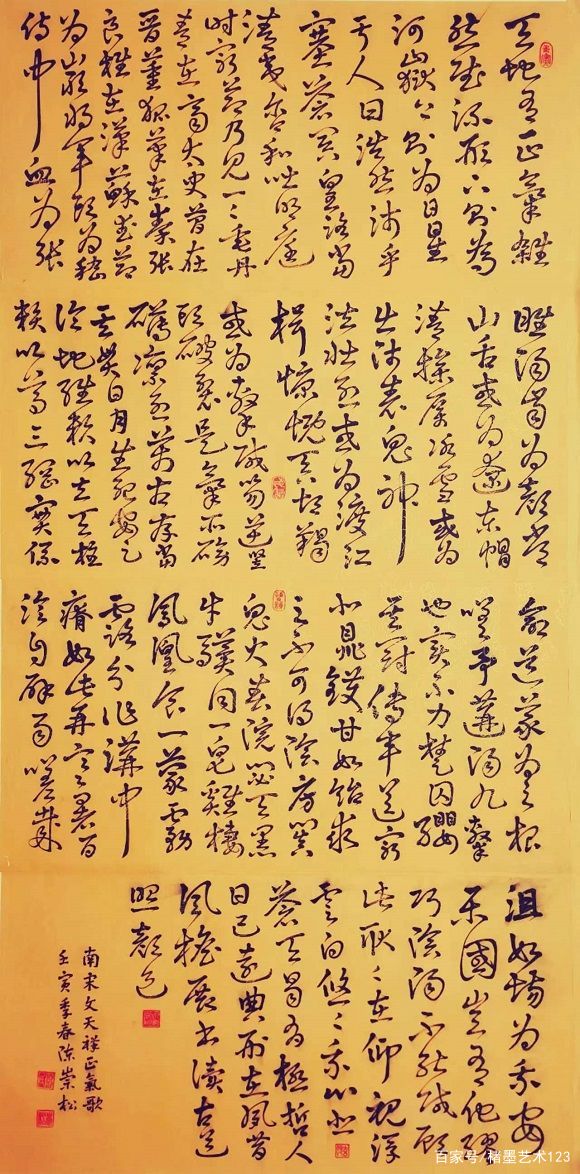 天地有正氣雜
然賦流形下則為
河嶽上則為日星
于人曰浩然沛乎
塞蒼冥皇路當
清夷含和吐明庭
時窮節乃見一一垂丹
青在齊太史簡在
晉董狐筆在秦張
良椎在漢蘇武節
為嚴將軍頭為嵇
侍中血為張
睢陽齒為顏常
山舌或為遼東帽
清操厲冰雪或為
出師表鬼神
泣壯烈或為渡江
楫慷慨吞胡羯
或為擊賊笏逆豎
頭破裂是氣所磅
礴凜烈萬古存當
其貫日月生死安足
論地維賴以立天柱
賴以尊三綱實係
命道義為之根
嗟予遘陽九隸
也實不力楚囚纓
其冠傳車送窮
北鼎鑊甘如飴求
之不可得陰房闃
鬼火春院閟天黑
牛驥同一皂雞棲
鳳凰食一朝蒙霧
露分作溝中
瘠如此再寒暑百
沴自辟易嗟哉
沮洳場為我安
樂國豈有他繆
巧陰陽不能賊顧
此耿耿在仰視浮
雲白悠悠我心悲
蒼天曷有極哲人
日已遠典刑在夙昔
風檐展書讀古道
照顏色
南宋文天祥正氣歌
壬寅季春陳崇松
百家号/楮墨艺术123